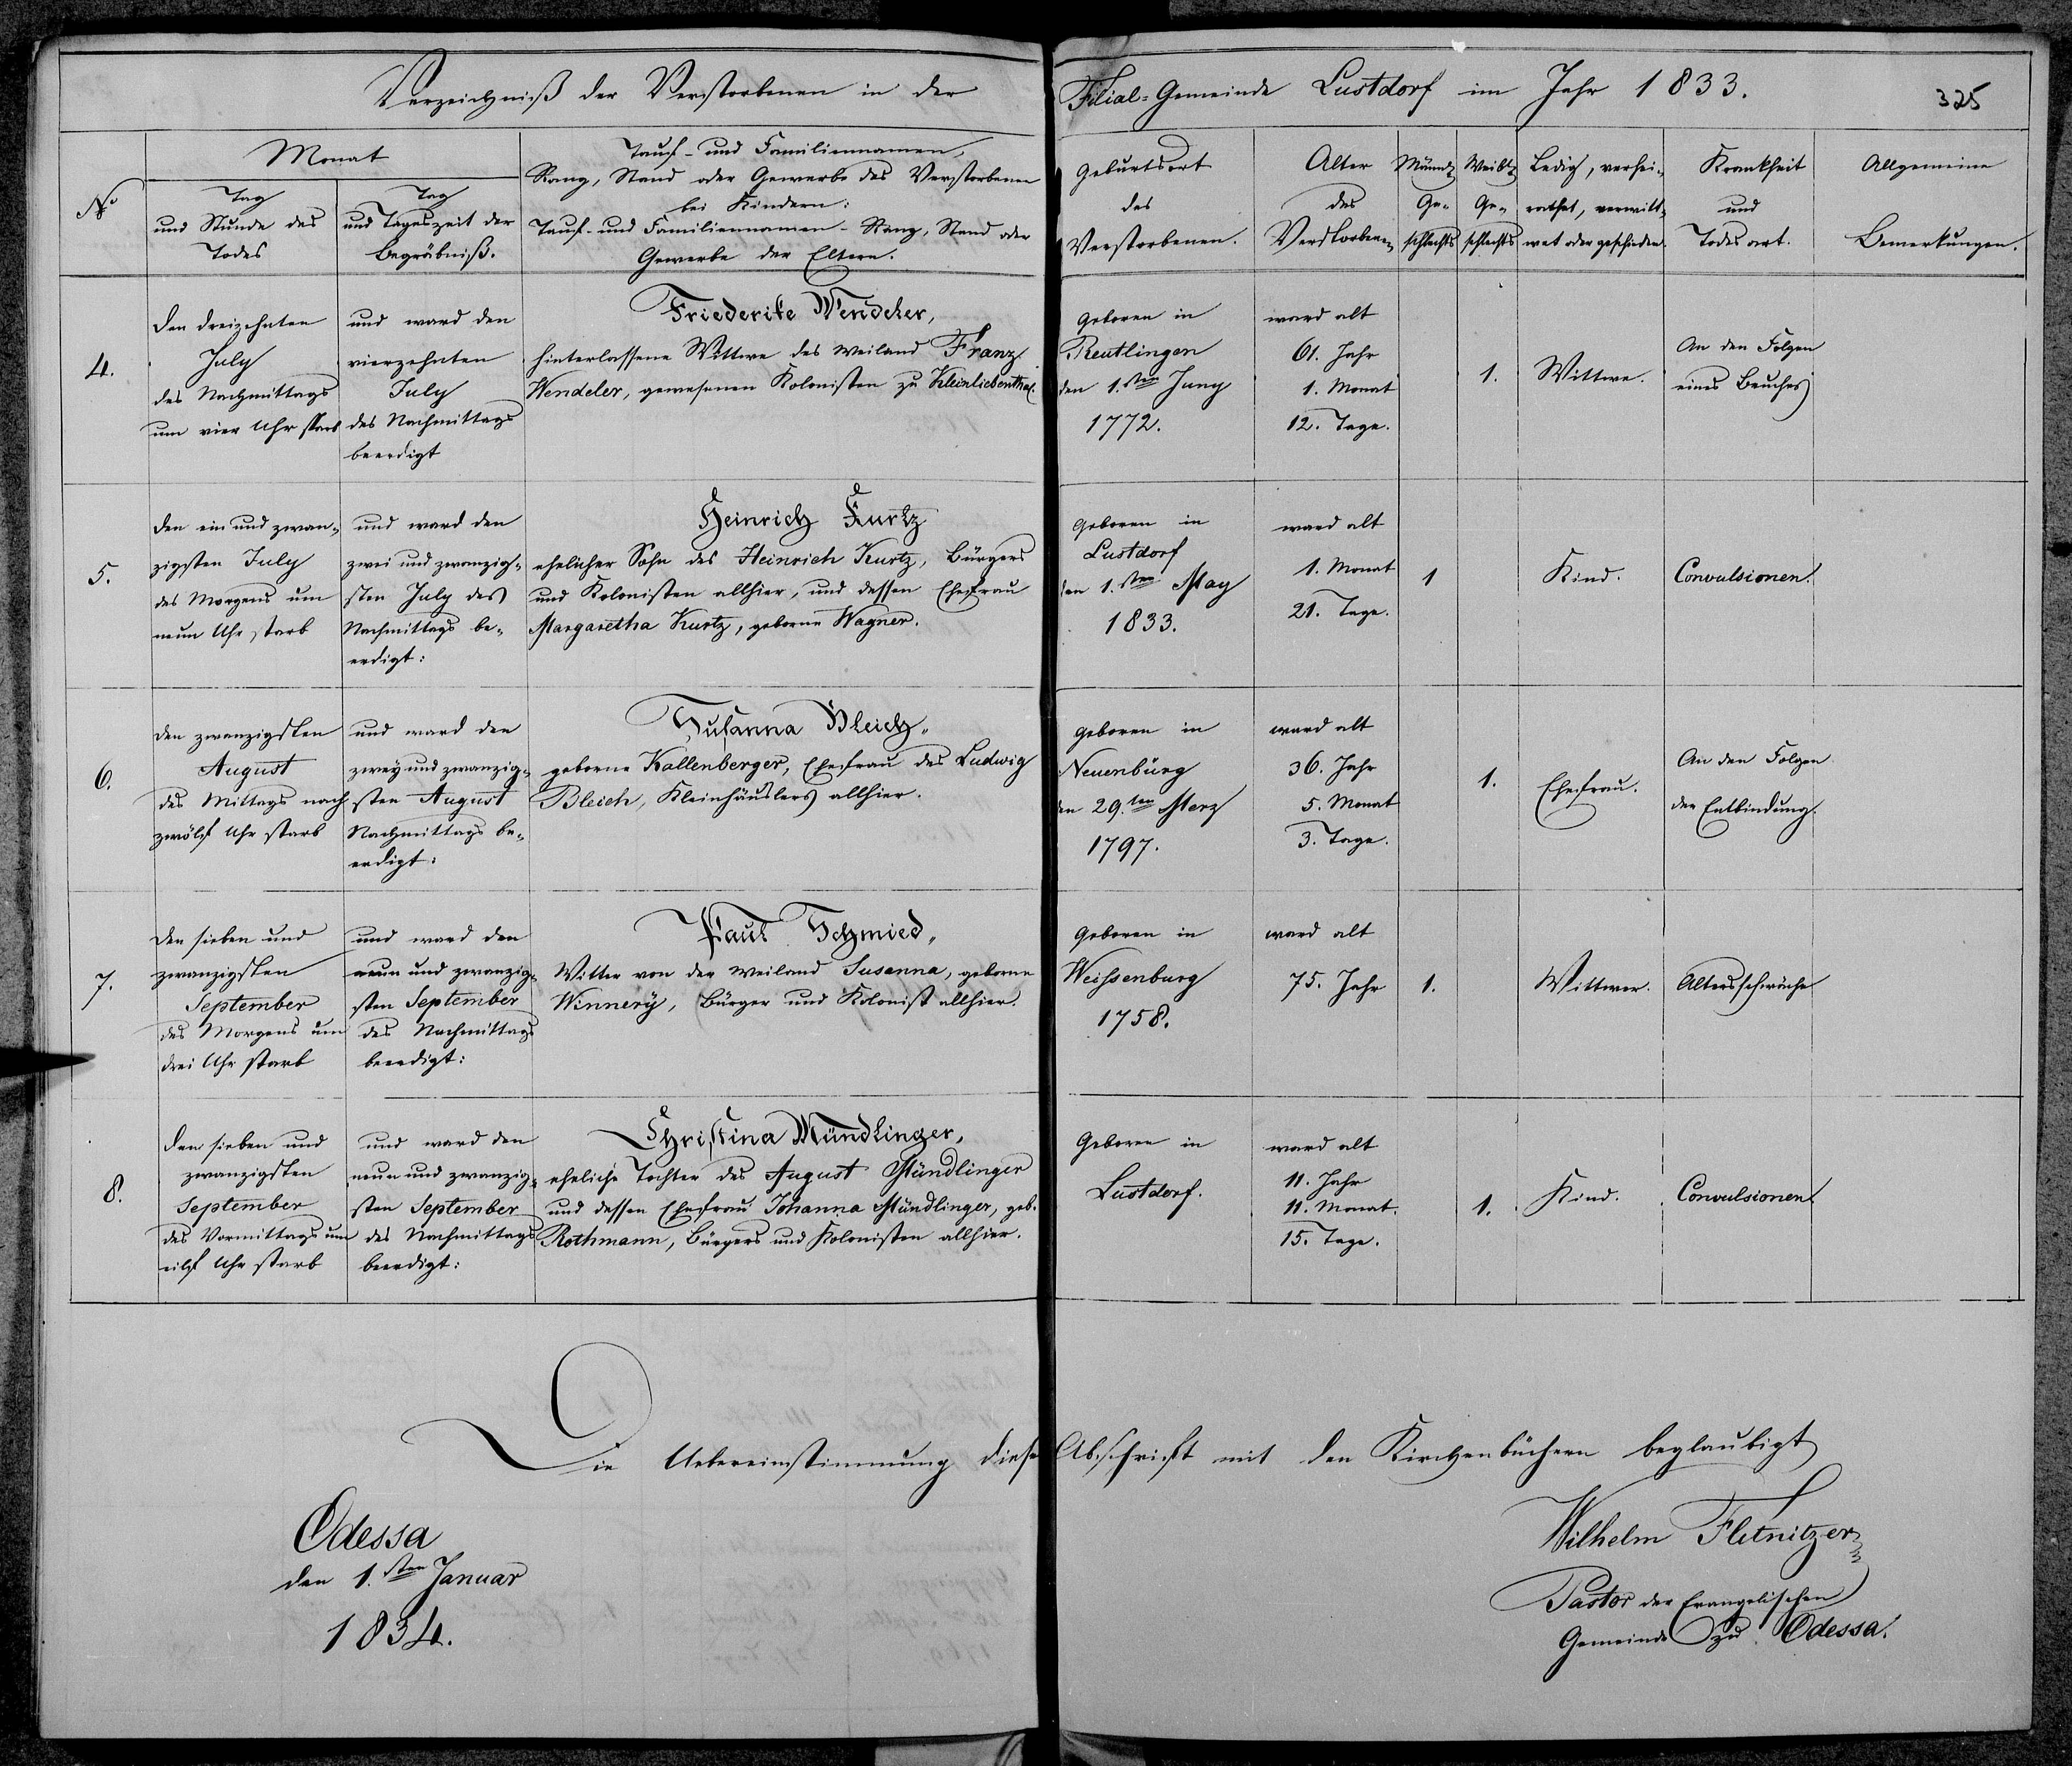 Verzeichniß der Verstorbenen in der Filial-Gemeinde Lustdorf im Jahr 1833.
325
No
Monat
Tag
und Stunde des
Todes
Tag
und Tageszeit der
Begräbniß.
Tauf- und Familiennamen,
Rang, Stand oder Gewerbe des Verstorbenen
bei Kindern:
Tauf- und Familiennamen - Rang, Stand oder
Gewerbe der Eltern.
Geburtsort
des
Verstorbenen.
Alter
des
Verstorbenen
Männl.
Ge-
schlechts
Weibl.
Ge-
schlechts
Ledig, verhei-
rathet, verwitt-
wet oder geschieden.
Krankheit
und
Todesart.
Allgemeine
Bemerkungen.
4.
den dreizehnten
July
des Nachmittags
um vier Uhr starb
und ward den
vierzehnten
July
des Nachmittags
beerdigt
Friederike Wendeler,
hinterlassene Wittwe des weiland Franz
Wendeler, gewesenen Kolonisten zu Kleinliebenthal.
Geboren in
Reutlingen
den 1.sten Juny
1772.
ward alt
61. Jahr
1. Monat
12. Tage.
1.
Wittwe.
An den Folgen
eines Bruches
5.
den ein und zwan-
zigsten July
des Morgens um
neun Uhr starb
und ward den
zwei und zwanzig-
sten July des
Nachmittags be-
erdigt:
Heinrich Kurtz
ehelicher Sohn des Heinrich Kurtz, Bürgers
und Kolonisten allhier, und dessen Ehefrau
Margaretha Kurtz, geborne Wagner.
Geboren in
Lustdorf
den 1.sten May
1833.
ward alt
1. Monat
21. Tage.
1
Kind.
Convulsionen.
6.
den zwanzigsten
August
des Mittags nach
zwölf Uhr starb
und ward den
zwey und zwanzig-
sten August
Nachmittags be-
erdigt:
Susanna Bleich,
geborne Kallenberger, Ehefrau des Ludwig
Bleich, Kleinhäuslers allhier.
geboren in
Neuenbürg
den 29.ten Merz
1797.
ward alt
36. Jahr
5. Monat
3. Tage.
1.
Ehefrau.
An den Folgen
der Entbindung.
7.
den sieben und
zwanzigsten
September
des Morgens um
drei Uhr starb
und ward den
neun und zwanzig-
sten September
des Nachmittags
beerdigt:
Paul Schmied,
Wittwer von der weiland Susanna, geborne
Winnery, Bürger und Kolonist allhier.
Geboren in
Weissenburg
1758.
ward alt
75. Jahr
1.
Wittwer.
Altersschwäche
8.
den sieben und
zwanzigsten
September
des Vormittags um
eilf Uhr starb
und ward den
neun und zwanzig-
sten September
des Nachmittags
beerdigt:
Christina Mündlinger,
eheliche Tochter des August Mündlinger
und dessen Ehefrau Johanna Mündlinger, geb.
Rothmann, Bürgers und Kolonisten allhier.
Geboren in
Lustdorf.
ward alt
11. Jahr
11. Monat.
15. Tage.
1.
Kind.
Convulsionen
Die Uebereinstimmung dieser Abschrift mit den Kirchenbüchern beglaubigt
Odessa
den 1.sten Januar
1834.
Wilhelm Fletnitzer
Pastor der Evangelischen
Gemeinde zu Odessa.